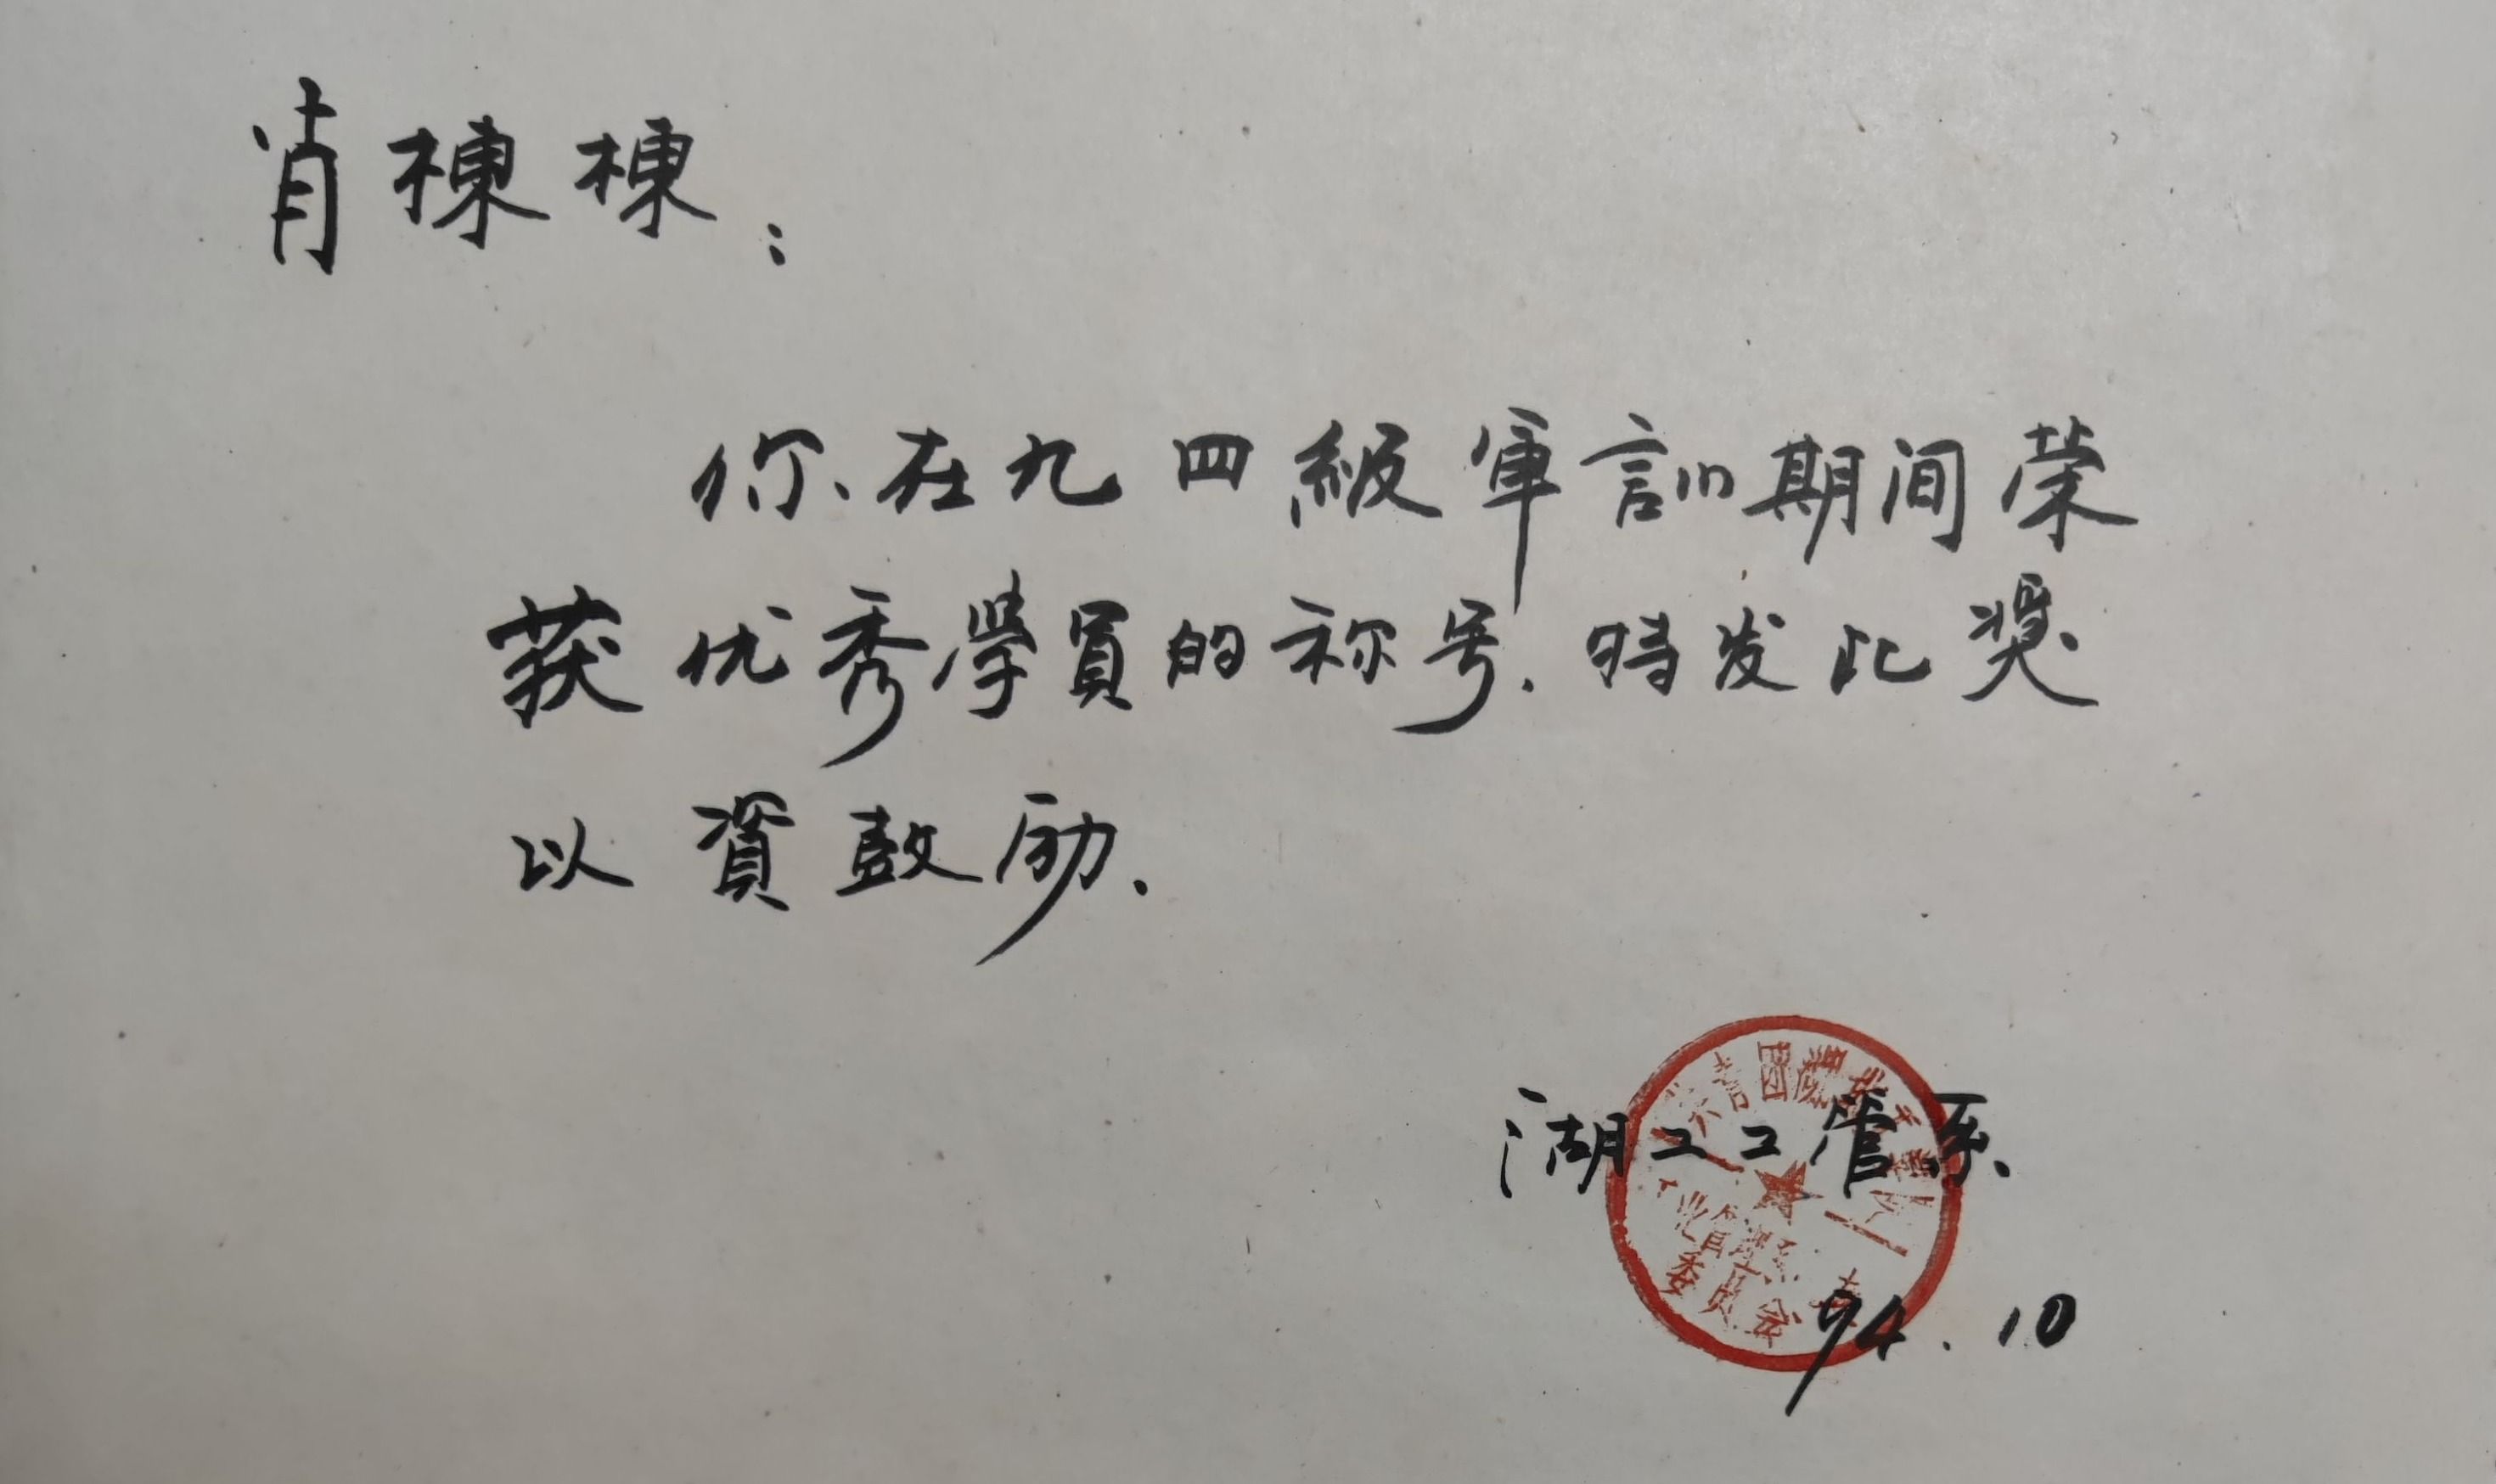 肖棟棟：
你在九四級軍訓期间荣
获优秀學員的称号.特发此奖
以資鼓励.
湖工工管系
委员会
94.10